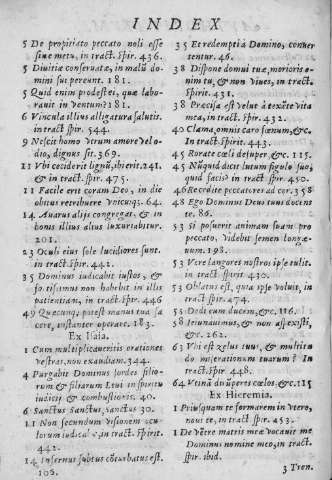 INDEX
5 De propitiato peccato noli esse
sine metu, in tract. Spir. 436.
5 Divitiæ conseruatæ, in malũ domini
sui pereunt. 181.
5 Quid enim prodest ei, quæ laborauit
in ventum? 181.
6 Vincula illius alligatura salutis.
in tract. spir. 544.
9 Nescit homo vtrum amore vel odio,
dignus sit. 369.
11 Vbi ceciderit lignũ, ibi erit. 241.
& in tract. spir. 475.
11 Facile erit coram Deo, in die
obitus retribuere vnicuiq;. 64.
14 Auarus alijs congregat, & in
bonis illius alius luxuriabitur.
201.
23 Oculi eius sole lucidiores sunt.
in tract. Spir. 442.
35 Dominus iudicabit iustos, &
fortissimus non habebit in illis
patientiam, in tract. Spir. 446
49 Quecunq; potest manus tua facere,
instanter operare. 183.
Ex Isaia.
1 Cum multiplicaueritis orationes
vestras, non exaudiam. 344.
4 Purgabit Dominus sordes filiorum
& filiarum in spiritu
iudicij & combustionis. 40.
6 Sanctus Sanctus, sanctus 30.
11 Non secundum visionem oculorum
iudicat, in tract. Spirit.
442.
14 Infernus subtus conturbatus est.
105.
35 Et redempti à Domino, conuertentur.
46.
38 Dispone domui tuæ, morieris enim
tu, & non viues, in tract.
Spirit. 431.
38 Præcisa est velut à texẽte vita
mea, in tract. Spir. 432.
40 Clama, omnis caro fœnum, &c.
In tract. Spirit. 443.
45 Rorate cœli desuper, &c. 115.
45 Nũquid dicit lutum figulo suo;
quid facis? in tract. spir. 450.
46 Recordite peccatores ad cor. 358
48 Ego Dominus Deus tuus docens
te. 86.
53 Si posuerit animam suam pro
peccato, videbit semen longæuum.
198.
53 Vere langores nostros ipse tulit.
in tract. spirit. 430.
53 Oblatus est, quia ipse voluit, in
tract. Spir. 474.
55 Dedi eum ducem, &c. 116.
58 Ieiunauimus, & non aspexisti,
&c. 262.
63 Vbi est zelus tuus, & multitudo
miserationum tuarum? In
tract. Spir. 448.
64 Vtinã dirũperes cœlos, &c. 115
Ex Hieremia.
1 Priusquam te formarem in vtero,
noui te, in tract. spir. 453.
1 De vẽtre matris meæ vocauit me
Dominus nomine meo, in tract.
spir. ibid.
3 Tren.